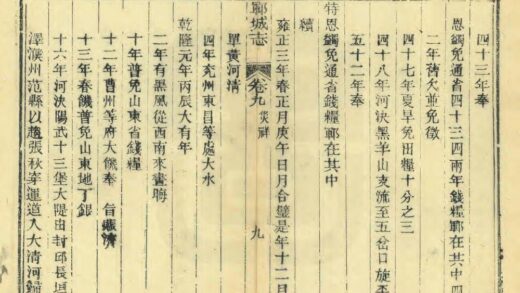 四十三年奉
恩蠲免通省四十三四兩年錢糧鄆在其中四
二年舊欠並免徵
四十七年夏旱免田糧十分之三
四十八年河決黑羊山支流至五岔口旋
五十二年奉
特恩蠲免通省錢糧鄆在其中
續
鄆城志 卷九 災祥 九
雍正三年春正月庚午日月合璧是年十二月
單黃河清
四年兗州東昌等處大水
乾隆元年丙辰大有年
二年有黑風從西南來晝晦
十年普免山東省錢糧
十二年曹州等府大饑奉 旨賑濟
十三年春饑普免山東地丁銀
十六年河決陽武十三堡大隄由封邱長垣
澤濮州范縣以趨張秋穿運道入大清河歸